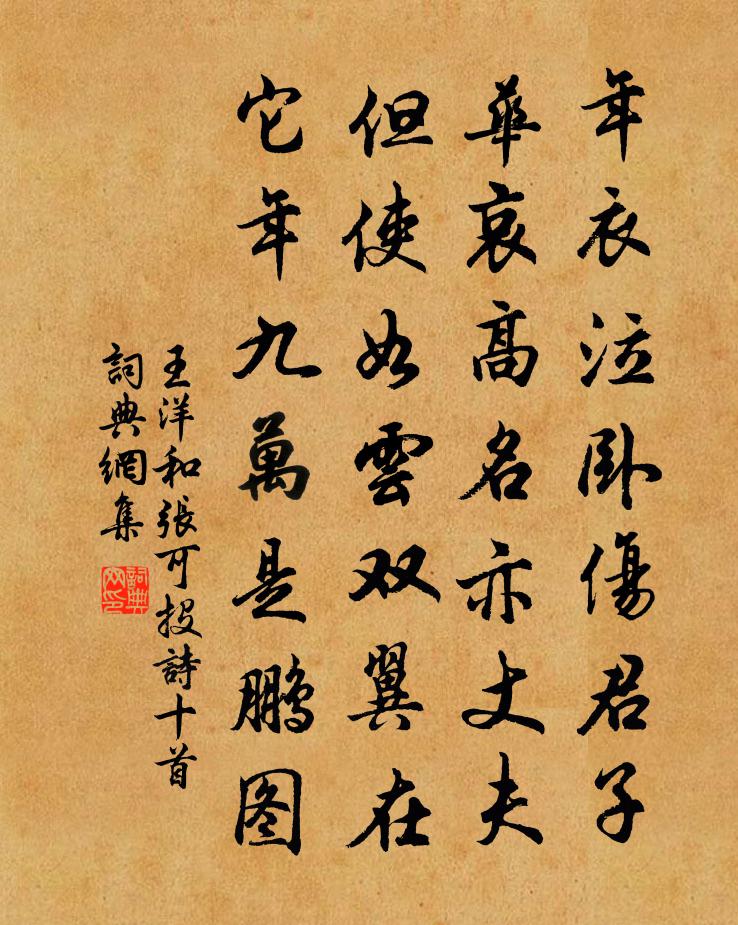 年衣泣卧傷君子
華哀高名亦丈夫
但使如雲双翼在
它年九萬是鵬图
王洋和張可投詩十首
詞典網集
詞典网印